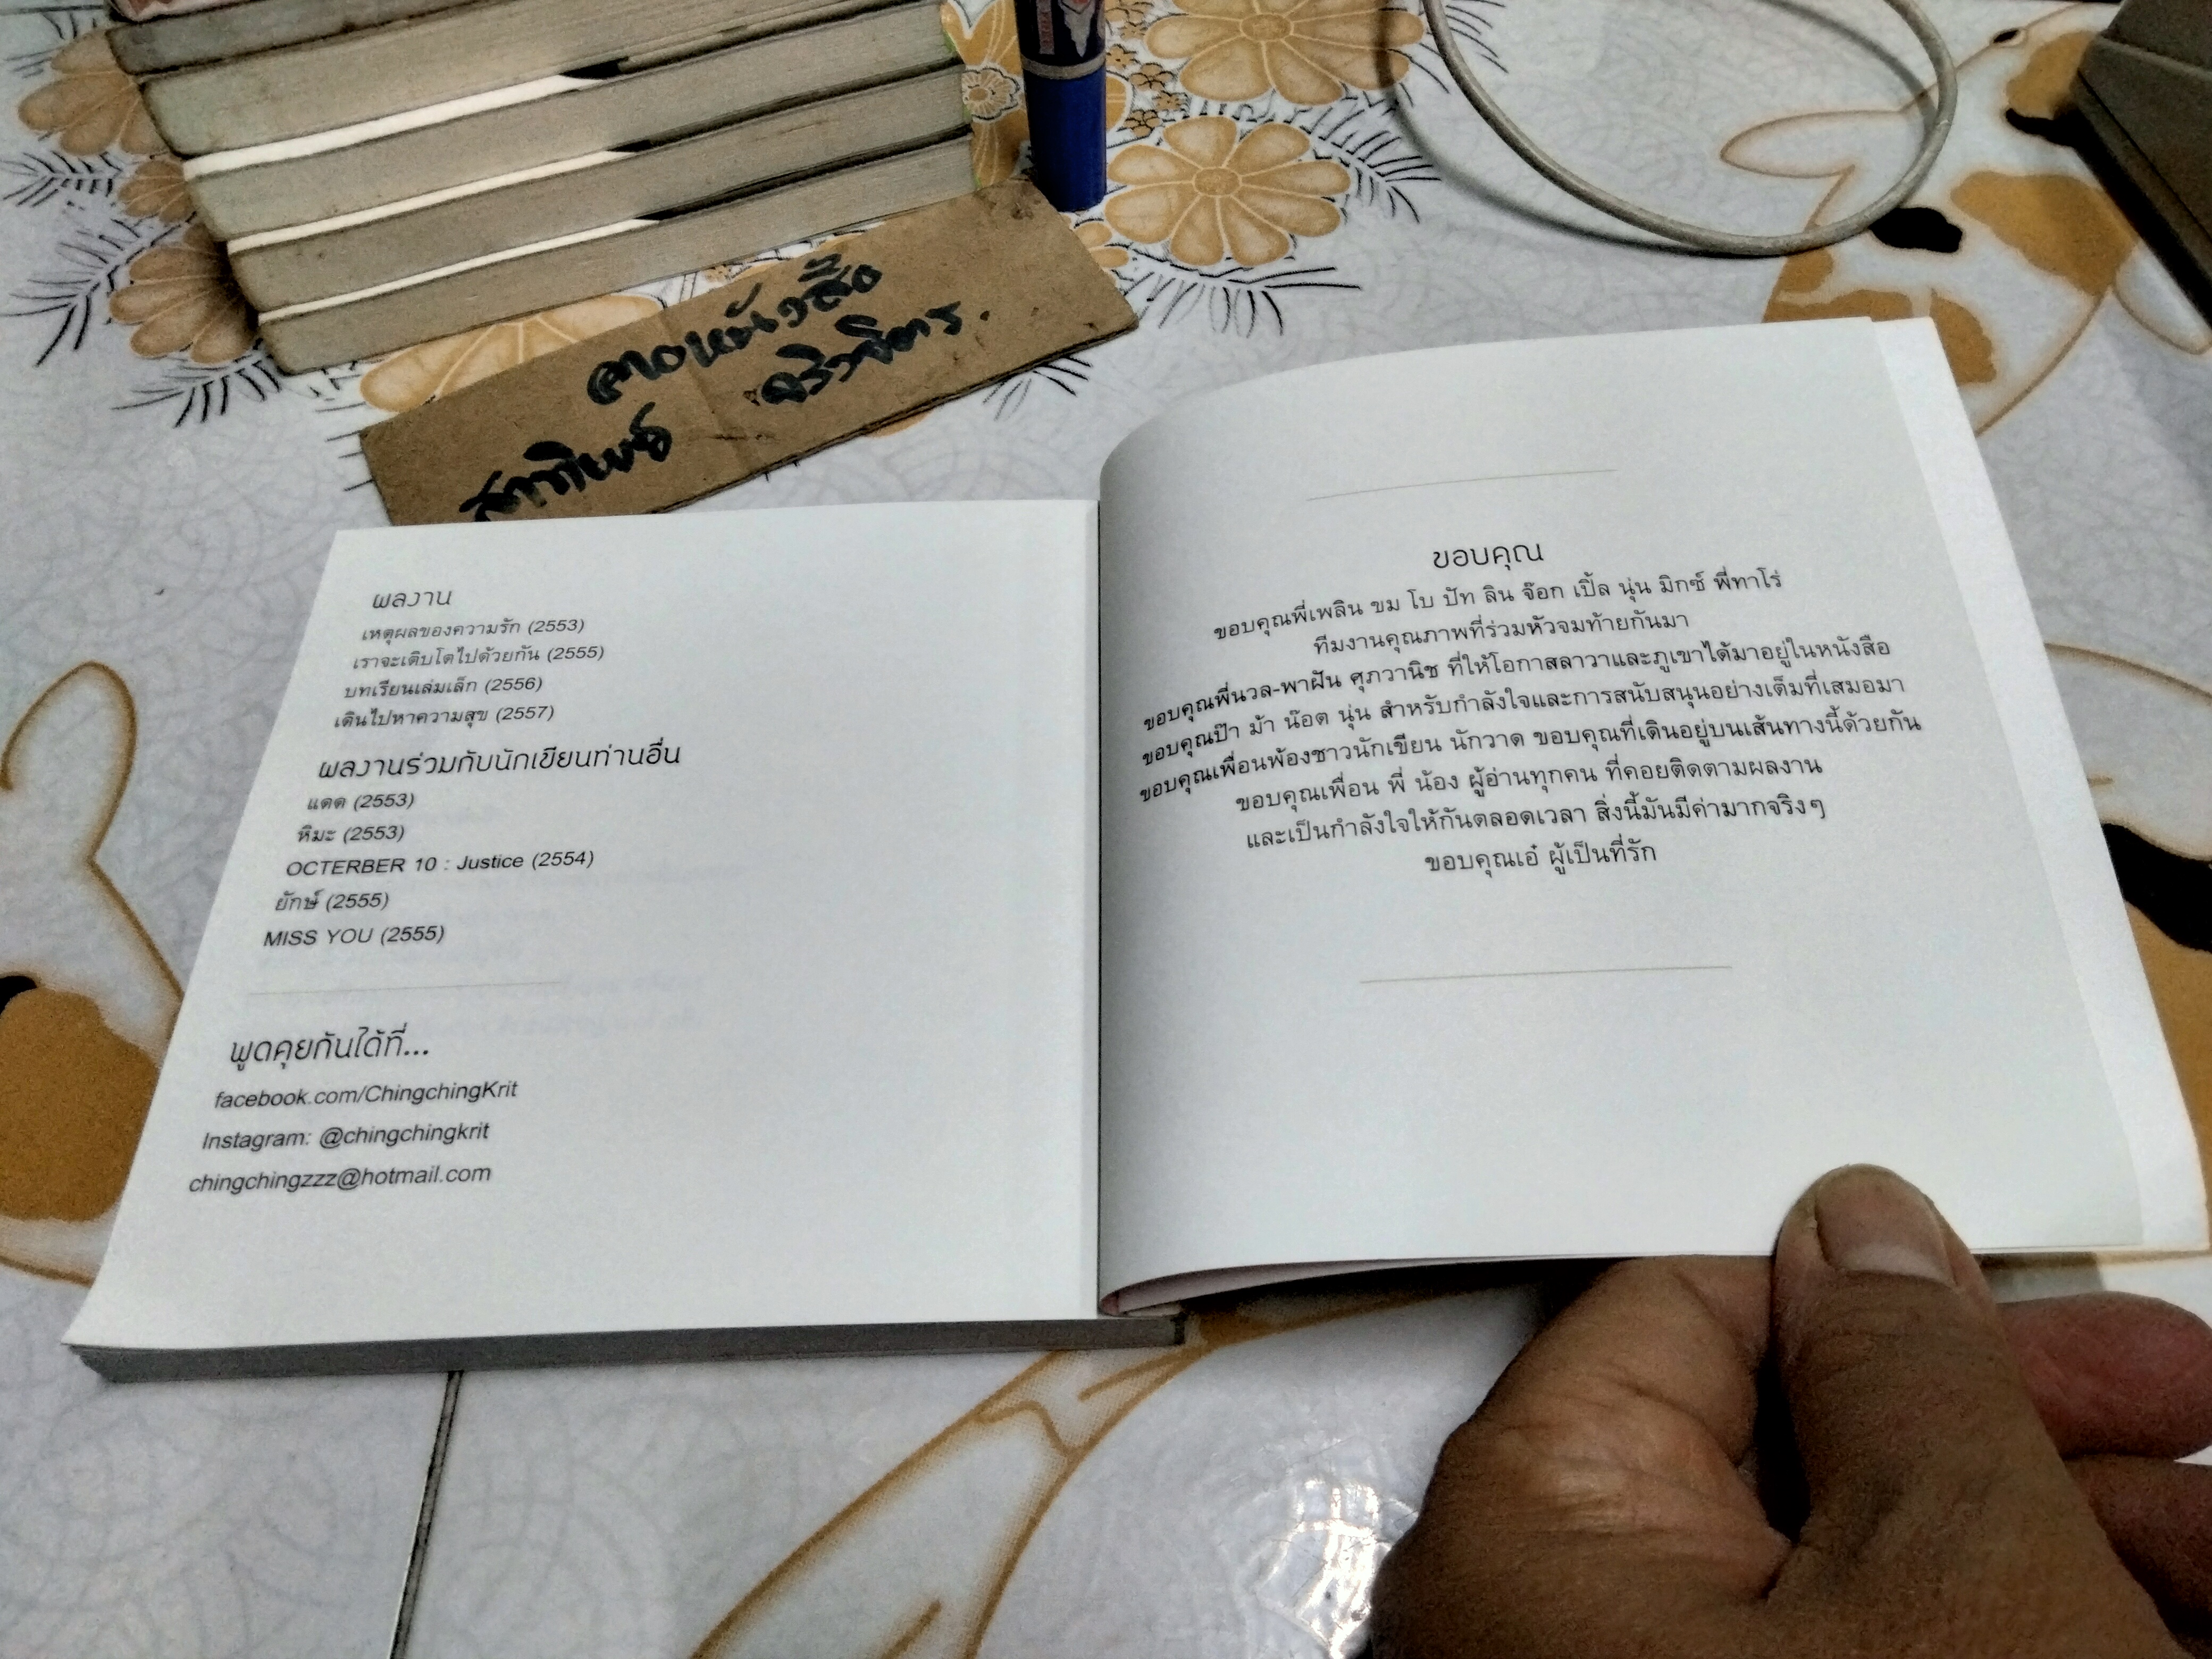 ขายหนังสือ
สาทิพย์ ศริวจิตร.
ผลงาน
เหตุผลของความรัก (2553)
เราจะเติบโตไปด้วยกัน (2555)
บทเรียนเล่มเล็ก (2556)
เดินไปหาความสุข (2557)
ผลงานร่วมกับนักเขียนท่านอื่น
แดด (2553)
หิมะ (2553)
OCTERBER 10 : Justice (2554)
ยักษ์ (2555)
MISS YOU (2555)
พูดคุยกันได้ที่...
facebook.com/ChingchingKrit
Instagram: @chingchingkrit
chingchingzzz@hotmail.com
ขอบคุณ
ขอบคุณพี่เพลิน ขม โบ ปัท ลิน จ๊อก เปิ้ล นุ่น มิกซ์ พี่ทาโร่
ทีมงานคุณภาพที่ร่วมหัวจมท้ายกันมา
ขอบคุณพี่นวล-พาฝัน ศุภวานิช ที่ให้โอกาสลาวาและภูเขาได้มาอยู่ในหนังสือ
ขอบคุณป๊า ม้า น๊อต นุ่น สำหรับกำลังใจและการสนับสนุนอย่างเต็มที่เสมอมา
ขอบคุณเพื่อนพ้องชาวนักเขียน นักวาด ขอบคุณที่เดินอยู่บนเส้นทางนี้ด้วยกัน
ขอบคุณเพื่อน พี่ น้อง ผู้อ่านทุกคน ที่คอยติดตามผลงาน
และเป็นกำลังใจให้กันตลอดเวลา สิ่งนี้มันมีค่ามากจริงๆ
ขอบคุณเอ๋ ผู้เป็นที่รัก